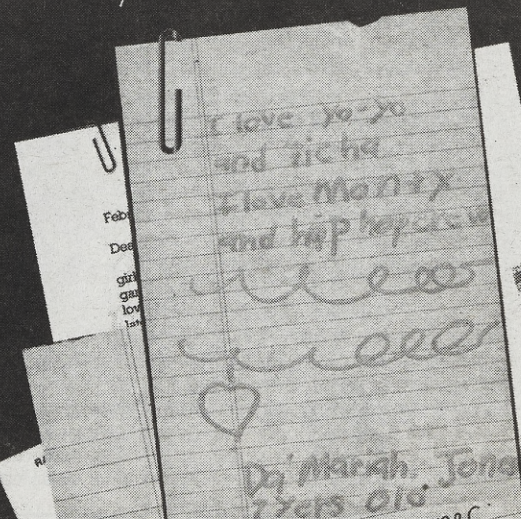 I love yo-yo
and ticha
I love Monty
and hip hop crew
Da'Mariah Jone
7 yers old
Feb
Dea
girl
gar
lov